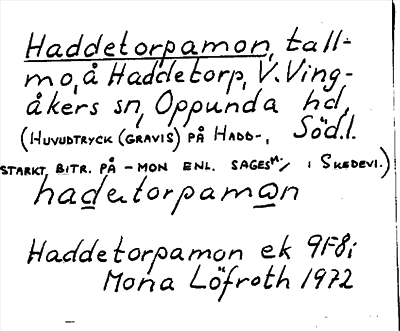 Haddetorpamon, tall-
mo, å Haddetorp, V. Ving-
åkers sn, Oppunda hd,
(HUVUDTRYCK (GRAVIS) PÅ HADD-, Söd.l.
STARKT BITR. PÅ -MON ENL. SAGESM., I SKEDEVI.)
hadetorpamon
Haddetorpamon ek 9F8i
Mona Löfroth 1972